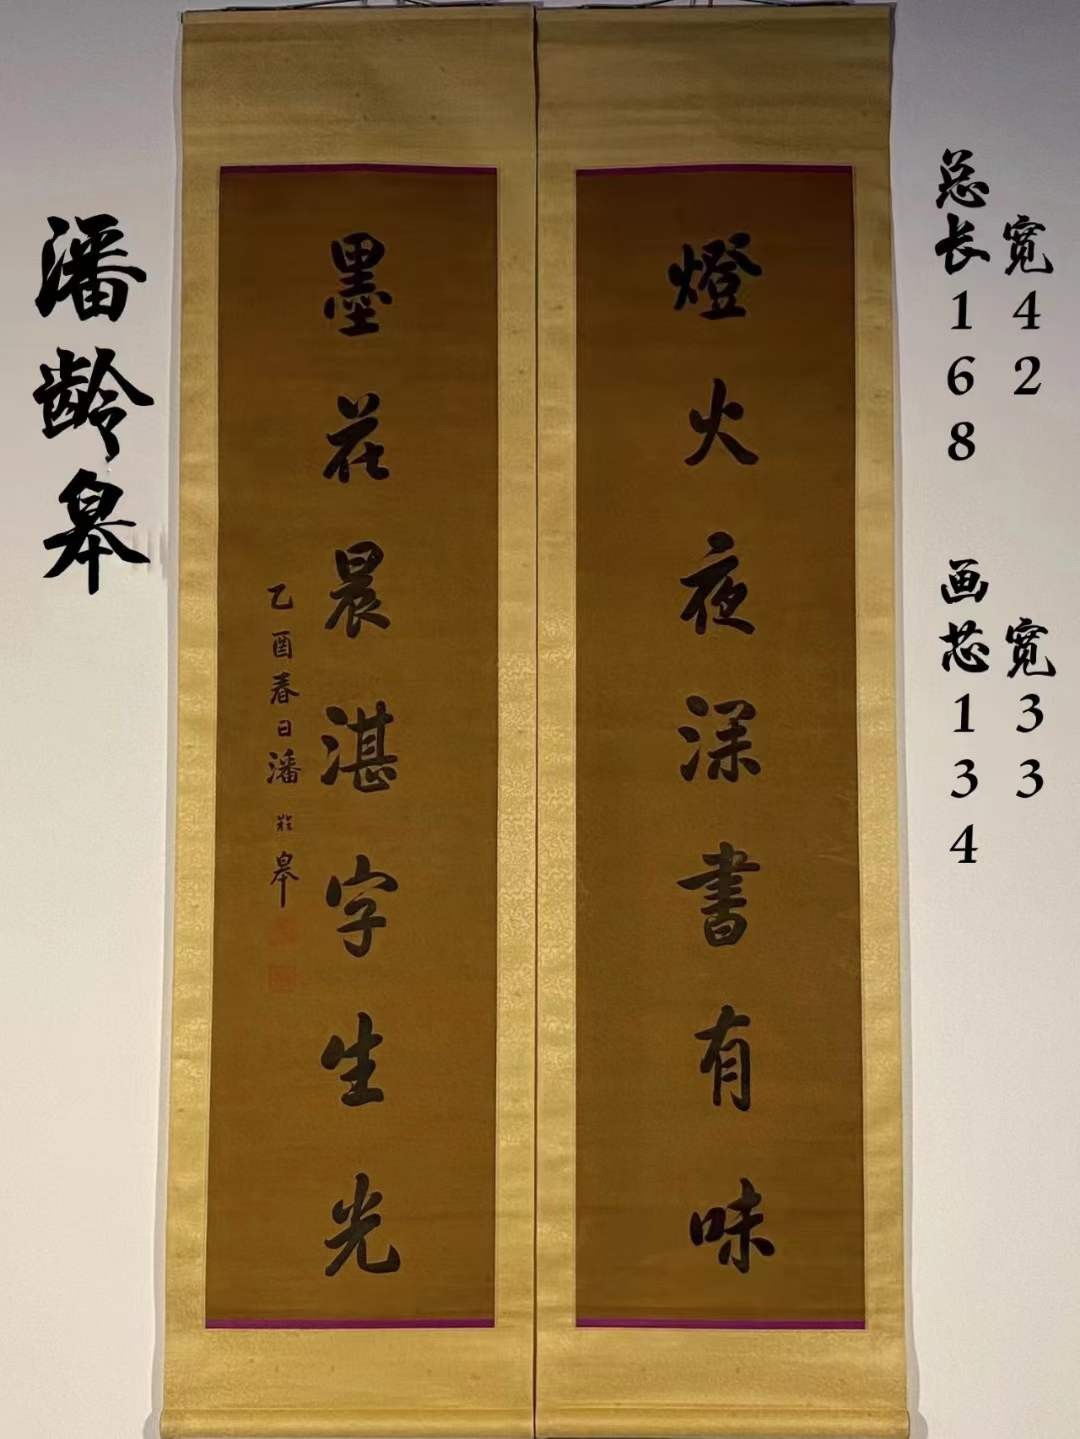 燈火夜深書有味
墨花晨湛字生光
乙酉春日潘龄皋
潘龄皋
总长168
宽42
画芯134
宽33